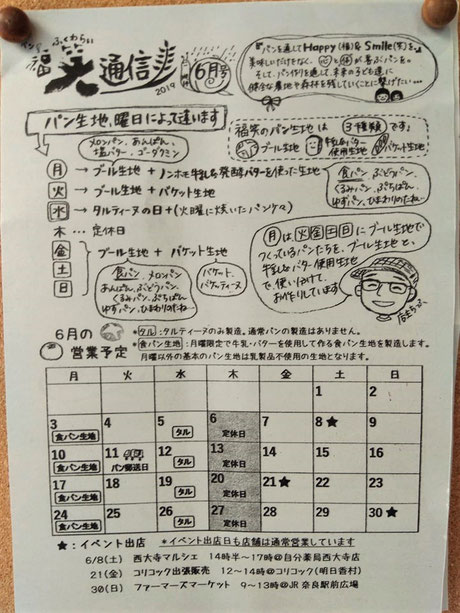 パンやー
ふくわらい
福笑通信
2019
6月号
『パンを通してHappy(福)& Smile(笑)を』
美味しいだけでなく、心と体が喜ぶパンを。
そして、パン作りを通して、未来の子ども達に
健全な農地や森林を残していくことに繋げたい…
パン生地、曜日によって違います
福笑のパン生地は 3種類 です
プール生地
牛乳&バター使用生地
バケット生地
メロンパン、あんぱん、
塩バター、ゴーダクミン
月 → プール生地 + ノンホモ牛乳&発酵バターを使った生地
火 → プール生地 + バケット生地
水 → タルティーヌの日 + (火曜に焼いたパン少々)
木 … 定休日
金
土
日
プール生地 + バケット生地
食パン、ぶどうパン、
くるみパン、ぷちぱん、
ゆずパン、ひまわりのたね…
食パン、メロンパン
あんぱん、ぶどうパン、
くるみパン、ぷちぱん
ゆずパン、ひまわりのたね…
バケット、
バケッティーヌ
月は、火金土日にプール生地で
つくっているパンたちを、プール生地と、
牛乳&バター使用生地
で、使いわけて、
お作りしています
6月の
営業予定
*タル:タルティーヌのみ製造。通常パンの製造はありません。
*食パン生地:月曜限定で牛乳・バターを使用して作る食パン生地を製造します。
月曜以外の基本のパン生地は乳製品不使用の生地となります。
月 火 水 木 金 土 日
1 2
3 4 5 6 7 8★ 9
食パン生地 タル 定休日
10 11 12 13 14 15 16
食パン生地 パン郵送日 タル 定休日
17 18 19 20 21★ 22 23
食パン生地 タル 定休日
24 25 26 27 28 29 30★
食パン生地 タル 定休日
★:イベント出店 *イベント出店日も店舗は通常営業しています
6/8(土) 西大寺マルシェ 14時半~17時@自分薬局西大寺店
21(金) コリコック出張販売 12~14時@コリコック(明日香村)
30(日) ファーマーズマーケット 9~13時@JR 奈良駅前広場